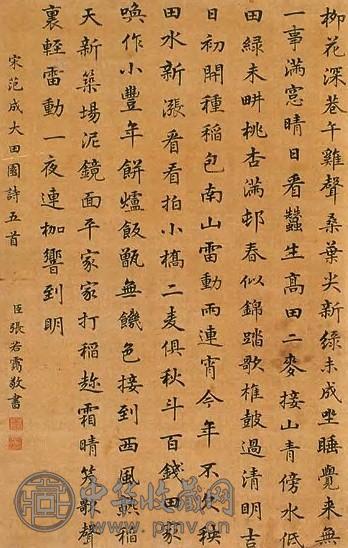 柳花深巷午雞聲桑葉尖新綠未成坐睡覺來無
一事滿窓晴日看蠶生高田二麥接山青傍水低
田綠未畊桃杏滿邨春似錦踏歌椎鼓過清明吉
日初開種稻包南山雷動雨連宵今年不欠秧
田水新漲看看拍小橋二麦俱秋斗百錢田家
喚作小豐年餅爐飯甑無饑色接到西風熟稻
天新築場泥鏡面平家家打稻趂霜晴笑歌聲
裏輕雷動一夜連枷響到明
宋范成大田園詩五首
臣張若靄敬書
中华收藏网
www.pmv.cn